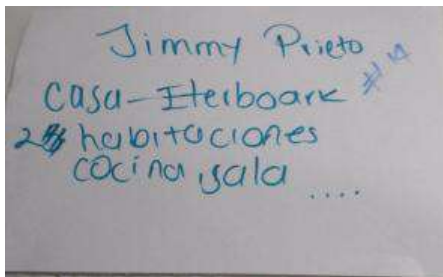 Jimmy Prieto
Casa-Eterboark #14
2 habitaciones
cocina, sala ....